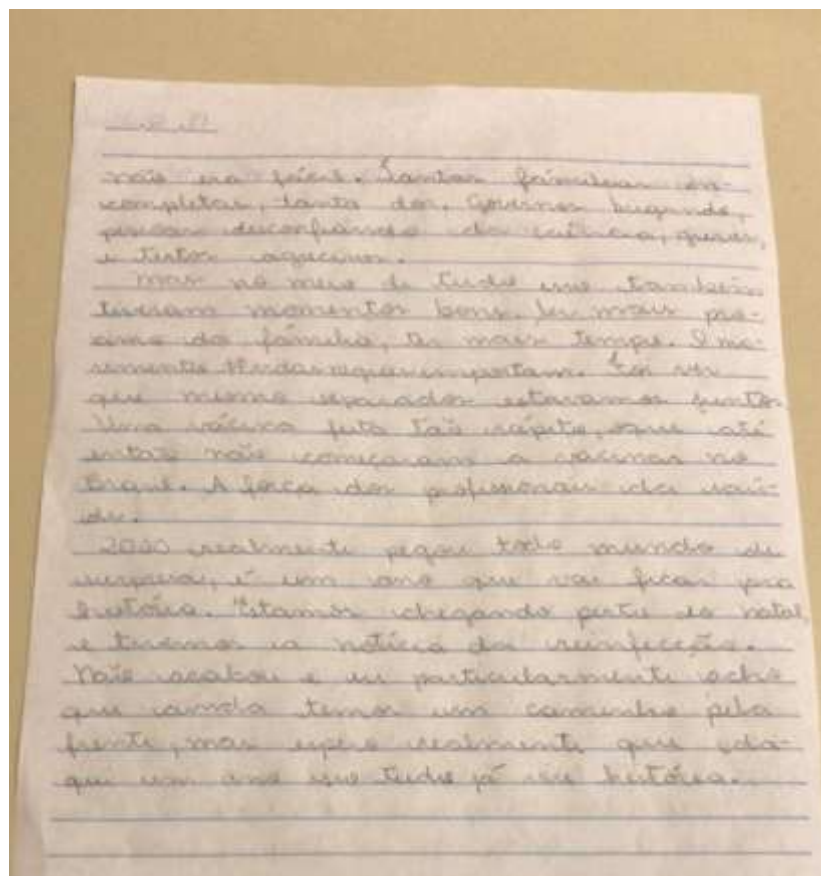 não era fácil. Tantas famílias in-
completas, tanta dor. Governos brigando,
pessoas desconfiando da ciência,
e tertos
mas no meio de tudo isso também
tiveram momentos bons. Ser mais pró-
ximo da família, ter mais tempo. O mo-
importam. Foi ver
que mesmo separados estavamos juntos.
Uma vácina feita tão rápito, que até
então não começaram a vácinas no
Brasil. A força dos profissionais da saú-
de.
2020 realmente pegou todo mundo de
surpresa, é um ano que vai ficar pra
história. Estamos chegando perto do natal,
e tivemos a notícia da reinfecção.
Não acabou e eu particularmente acho
que ainda temos um caminho pela
frente, mas espero realmente que da-
qui um ano isso tudo já seu história.